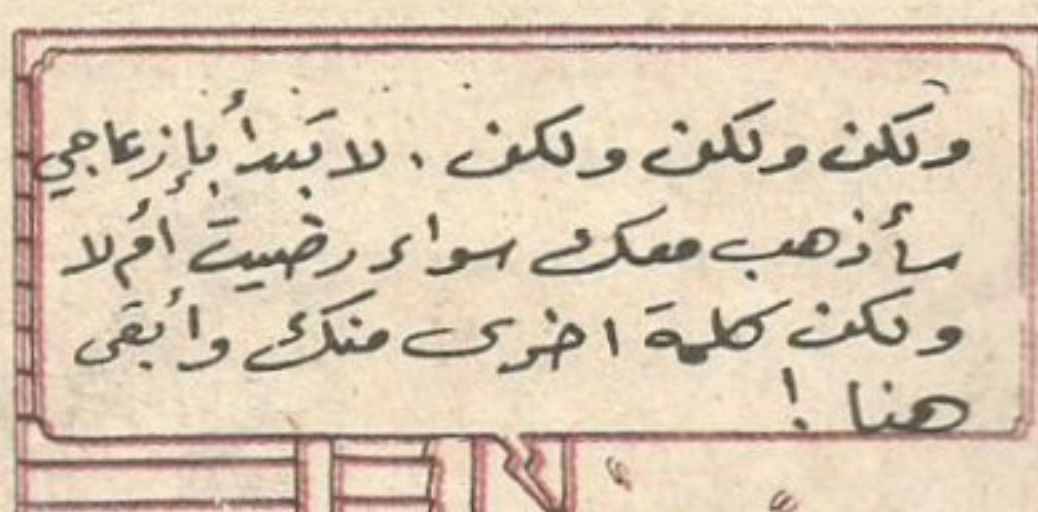 ولكن ولكن ولكن . لا تبدأ بإزعاجي
سأذهب معك سواء رضيت أم لا
ولكن كلمة اخرى منك وأبقى
هنا !